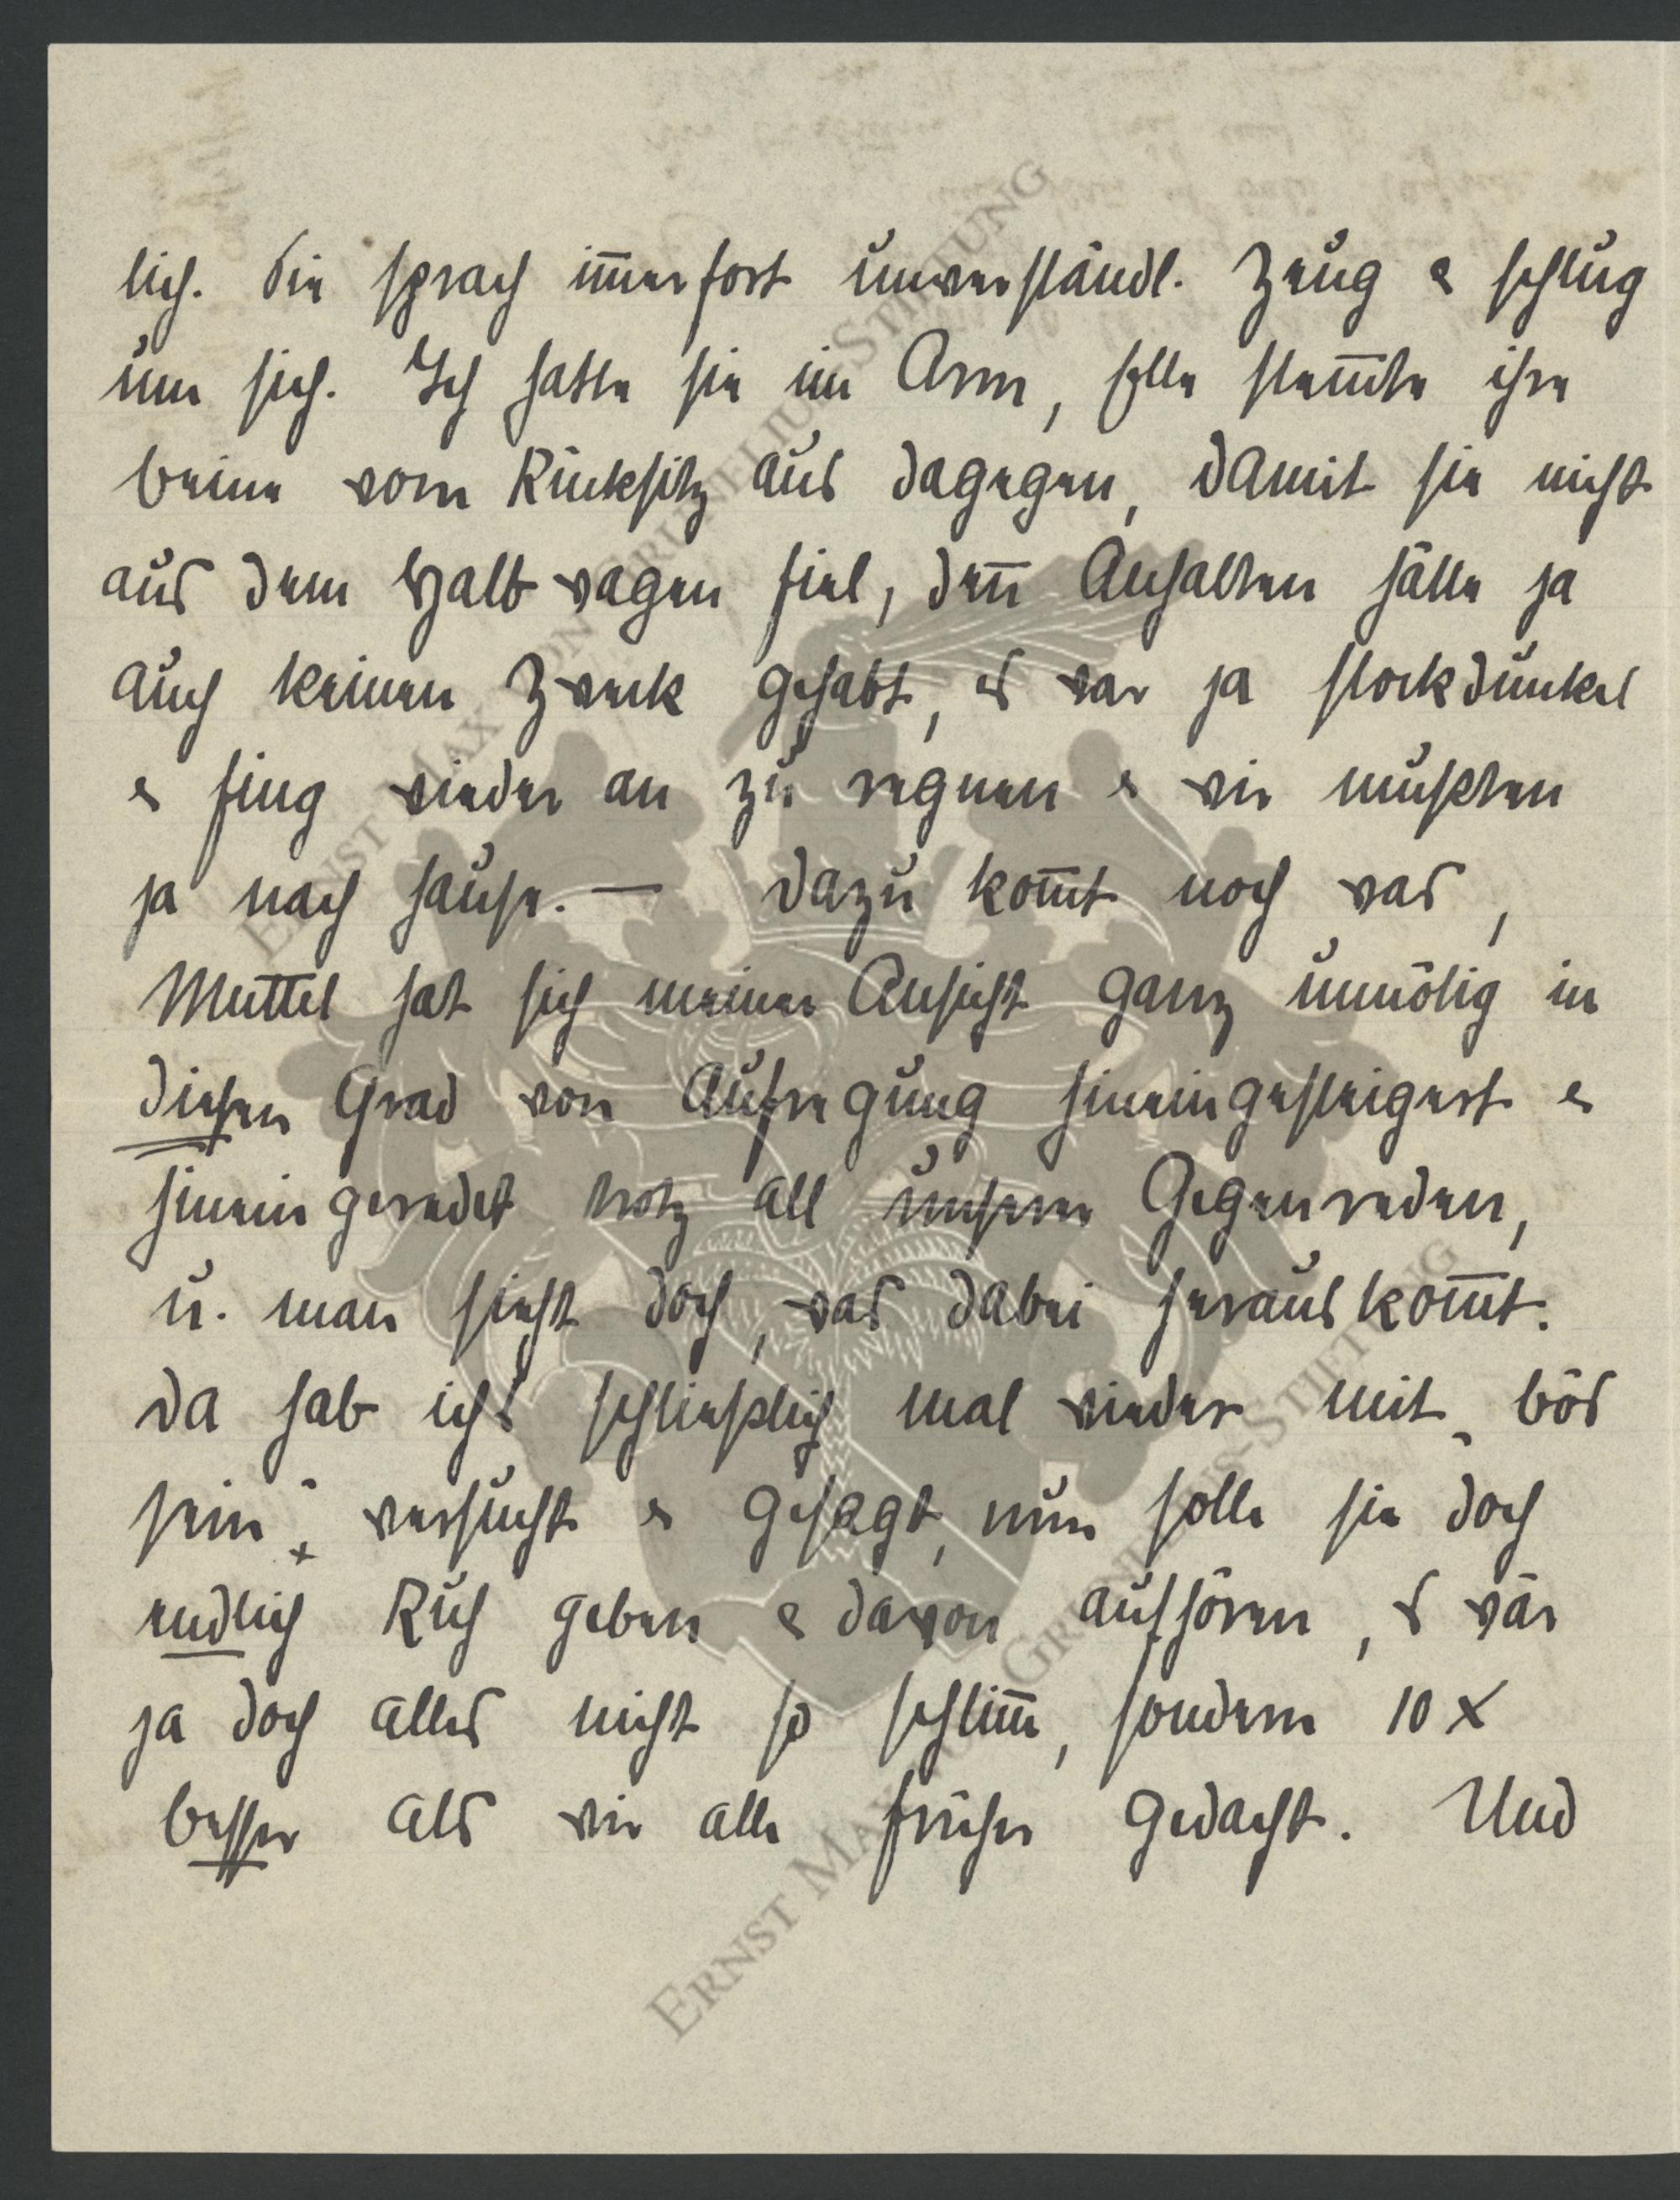 lich. Sie sprach im̅erfort unverständl. Zeug & schlug
um sich. Ich hatte sie im Arm, Elle stem̅te ihre
beine vom Rücksitz aus dagegen, damit sie nicht
aus dem Halbwagen fiel, den̅ Anhalten hätte ja
auch keinen Zweck gehabt, es war ja stockdunkel
& fing wieder an zu regnen & wir mußten
ja nach hause. — Dazu kom̅t noch was,
Muttel hat sich meiner Ansicht ganz unnötig in
diesen Grad von Aufregung hineingesteigert &
hineingeredet trotz all unserer Gegenreden,
u. man sieht doch, was dabei herauskom̅t.
Da hab ichs schließlich mal wieder mit „bös
sein“ versucht & gesagt, nun solle sie doch
endlich Ruh geben & davon aufhören, es wär
ja doch alles nicht so schlim̅, sondern 10 x
besser als wir alle früher gedacht. Und
ERNST MAX VON GRUNELIUS-STIFTUNG
ERNST MAX VON GRUNELIUS-STIFTUNG